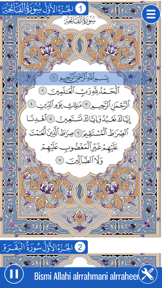 الجزء الأول سورة الفاتحة 1
سورة الفاتحة
بسم الله الرحمن الرحيم ١
الحمد لله رب العالمين ٢
الرحمن الرحيم ٣ مالك يوم الدين ٤
إياك نعبد وإياك نستعين ٥ اهدنا
الصراط المستقيم ٦ صراط الذين أنعمت
عليهم غير المغضوب عليهم
ولا الضالين ٧
الجزء الأول سورة البقرة 2
Bismi Allahi alrrahmani alrraheem